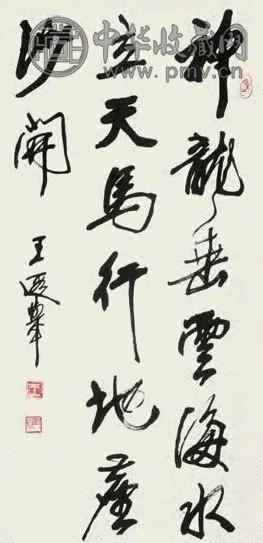 中华收藏网
www.pmv.cn
神龍垂雲海水
立天馬行地塵
沙開
王遐舉